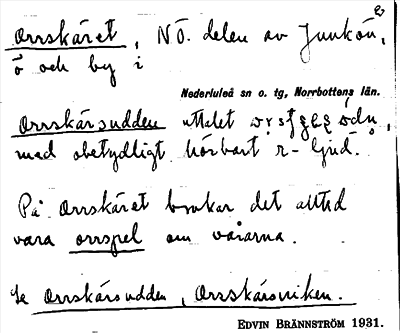 Orrskäret, NÖ. delen av Junkön,
ö och by i
Nederluleå sn o. tg, Norrbottens län.
Orrskärsudden uttalet
med obetydligt hörbart r-ljud.
På Orrskäret brukar det alltid
vara orrspel om vårarna.
Se Orrskärsudden, Orrskärsviken.
EDVIN BRÄNNSTRÖM 1931.